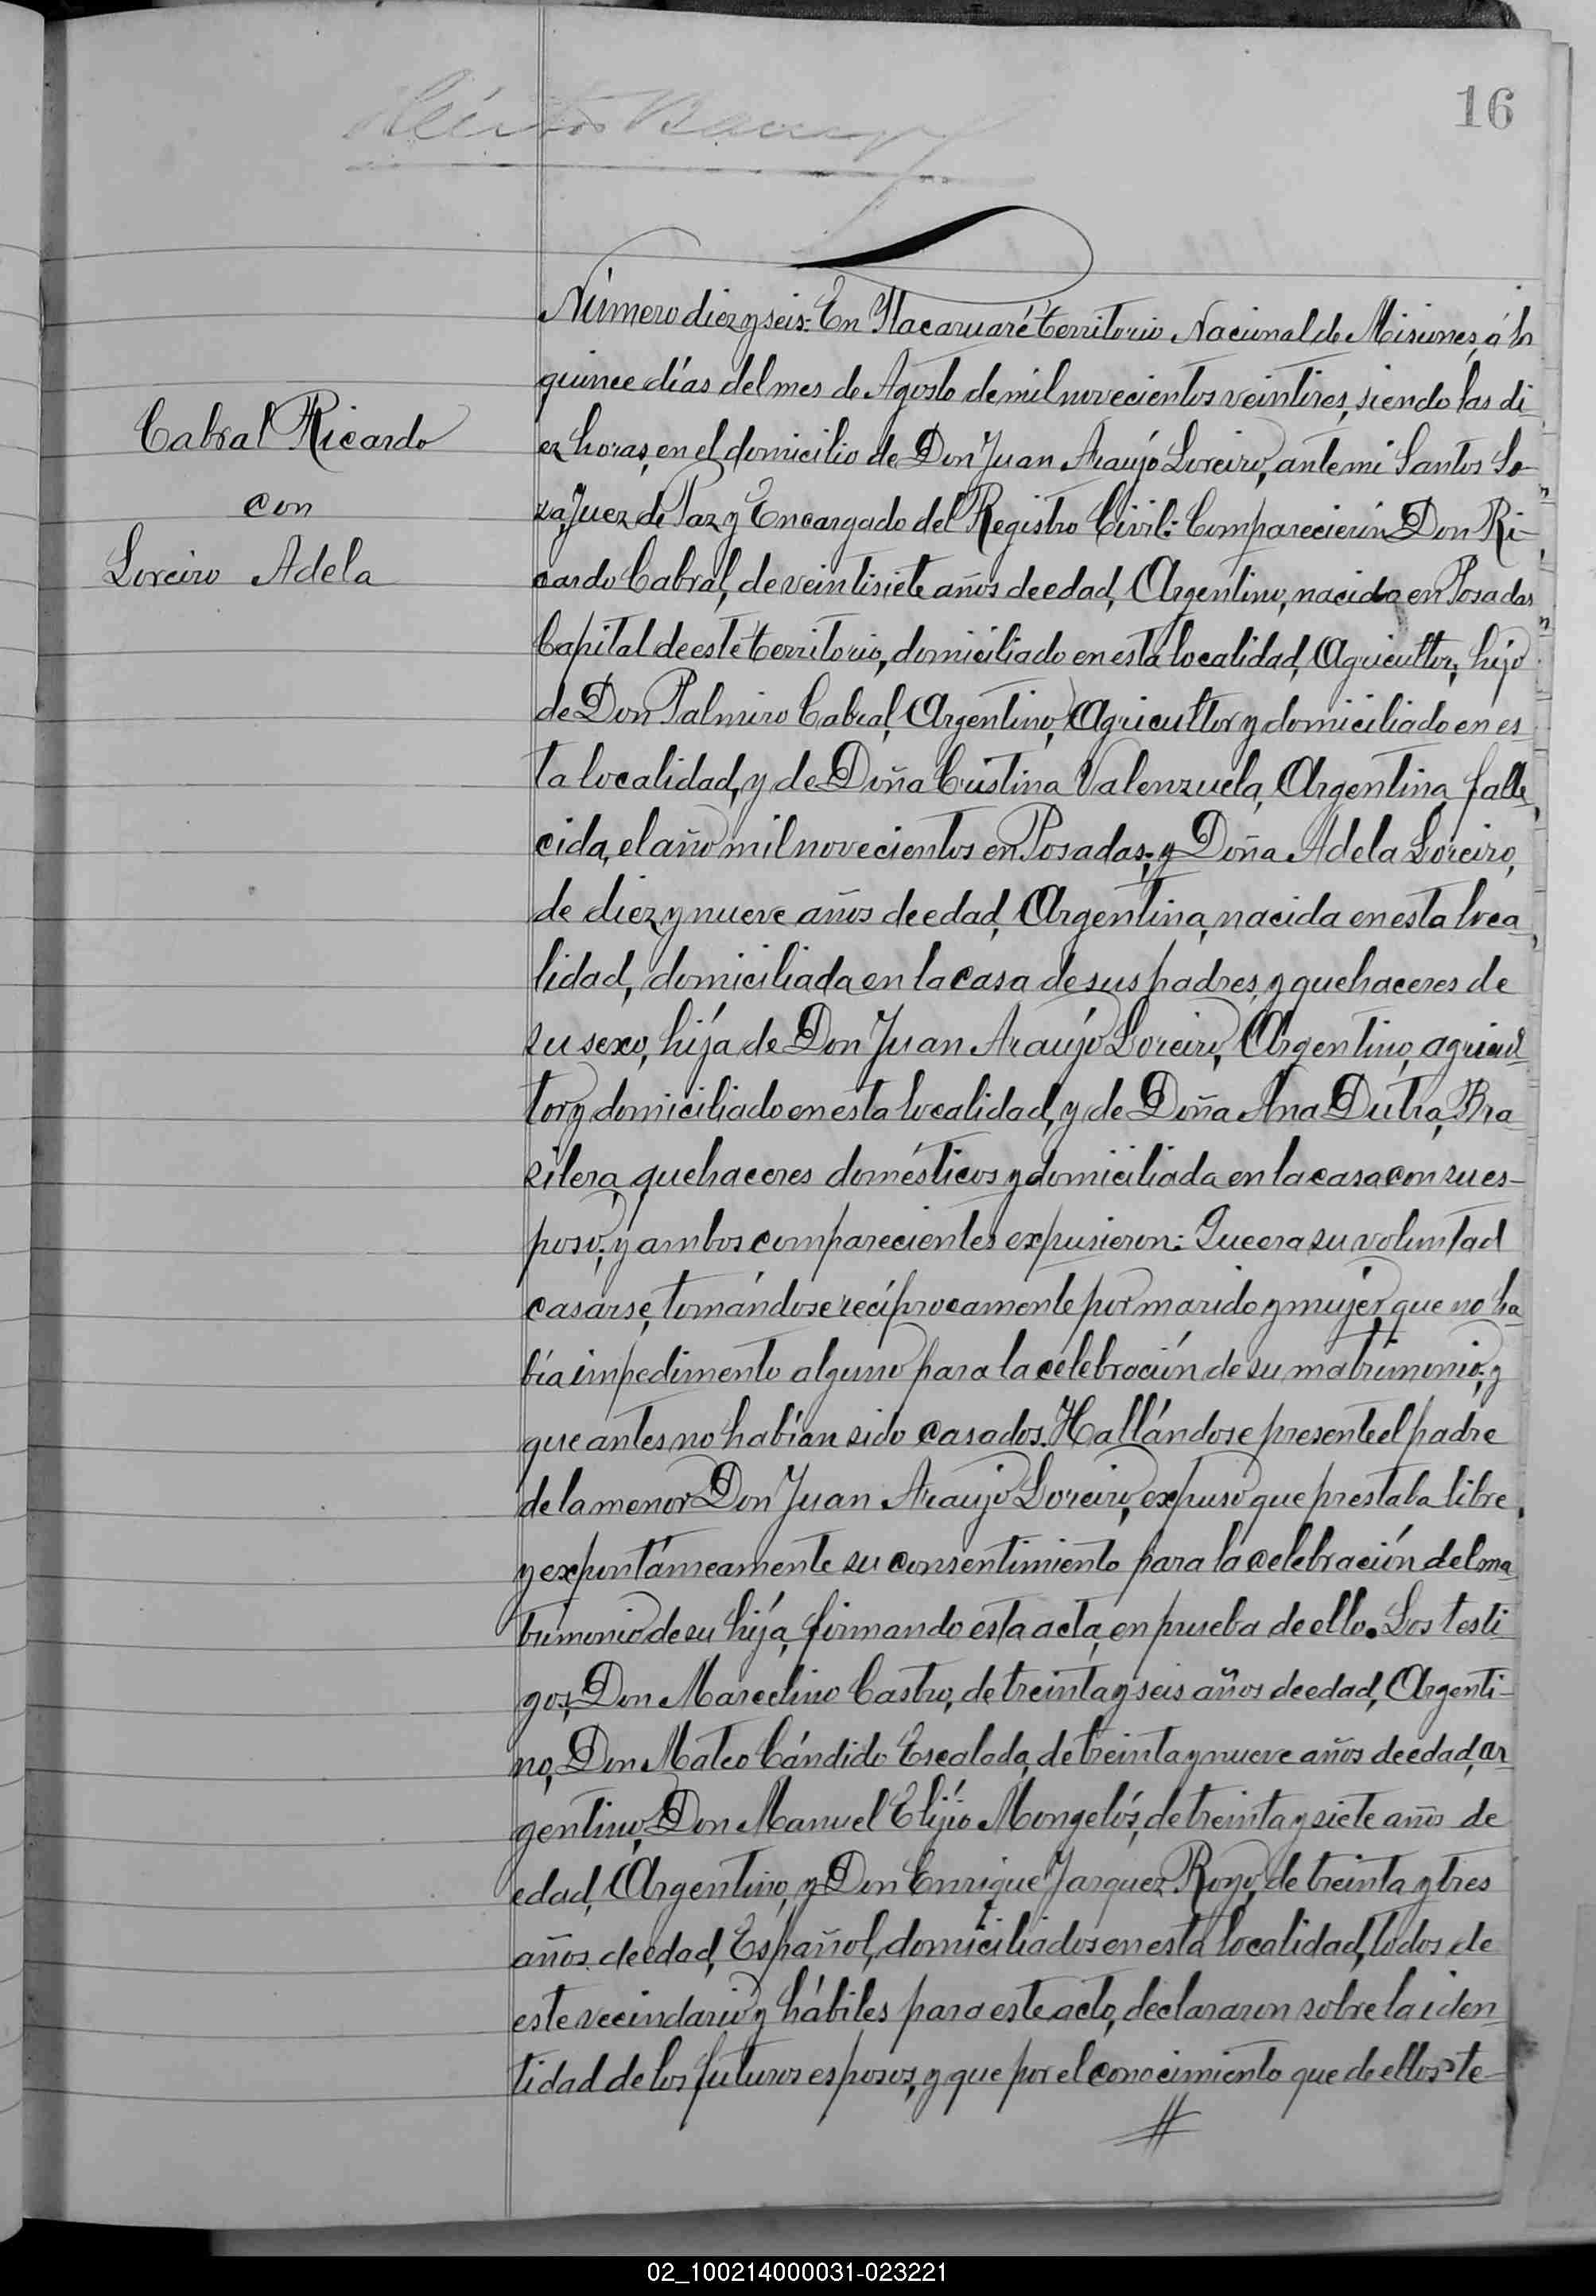 16
Cabral Ricardo
con
Loreiro Adela
Número diez y seis: En Itacaruaré Territorio Nacional de Misiones, á los
quince días del mes de Agosto de mil novecientos veintitres, siendo las di
ez horas, en el domicilio de Don Juan Araújo Loreiro, ante mi Santos So-
za, Juez de Paz y Encargado del Registro Civil: Comparecierón Don Ri-
cardo Cabral, de veintisiete años de edad, Argentino, nacido en Posadas
Capital de este territorio, domiciliado en esta localidad, Agricultor, hijo
de Don Palmiro Cabral, Argentino, Agricultor y domiciliado en es
ta localidad, y de Doña Cristina Valenzuela, Argentina, falle
cida, el año mil novecientos en Posadas; y Doña Adela Loreiro,
de diez y nueve años de edad, Argentina, nacida en esta loca
lidad, domiciliada en la casa de sus padres, y quehaceres de
su sexo, hija de Don Juan Araújo Loreiro, Argentino, agricul
tor y domiciliado en esta localidad, y de Doña Ana Dutra, Bra
silera, quehaceres domésticos y domiciliada en la casa con su es-
poso; y ambos comparecientes expusieron: Que era su voluntad
casarse, tomándose recíprocamente por marido y mujer, que no ha
bía impedimento alguno para la celebración de su matrimonio; y
que antes no habían sido casados. Hallándose presente el padre
de la menor Don Juan Araujo Loreiro, expuso que prestaba libre
y expontáneamente su consentimiento para la celebración del ma
trimonio de su hija, firmando esta acta, en prueba de ello. Los testi
gos, Don Marcelino Castro, de treinta y seis años de edad, Argenti-
no, Don Mateo Cándido Escalada, de treinta y nueve años de edad, ar
gentino, Don Manuel Elijio Mongelós, de treinta y siete años de
edad, Argentino, y Don Enrique Jarquez Royo, de treinta y tres
años de edad, Español, domiciliados en esta localidad, todos de
este vecindario y hábiles para este acto, declararon sobre la iden
tidad de los futuros esposos, y que por el conocimiento que de ellos te-
02_100214000031-023221